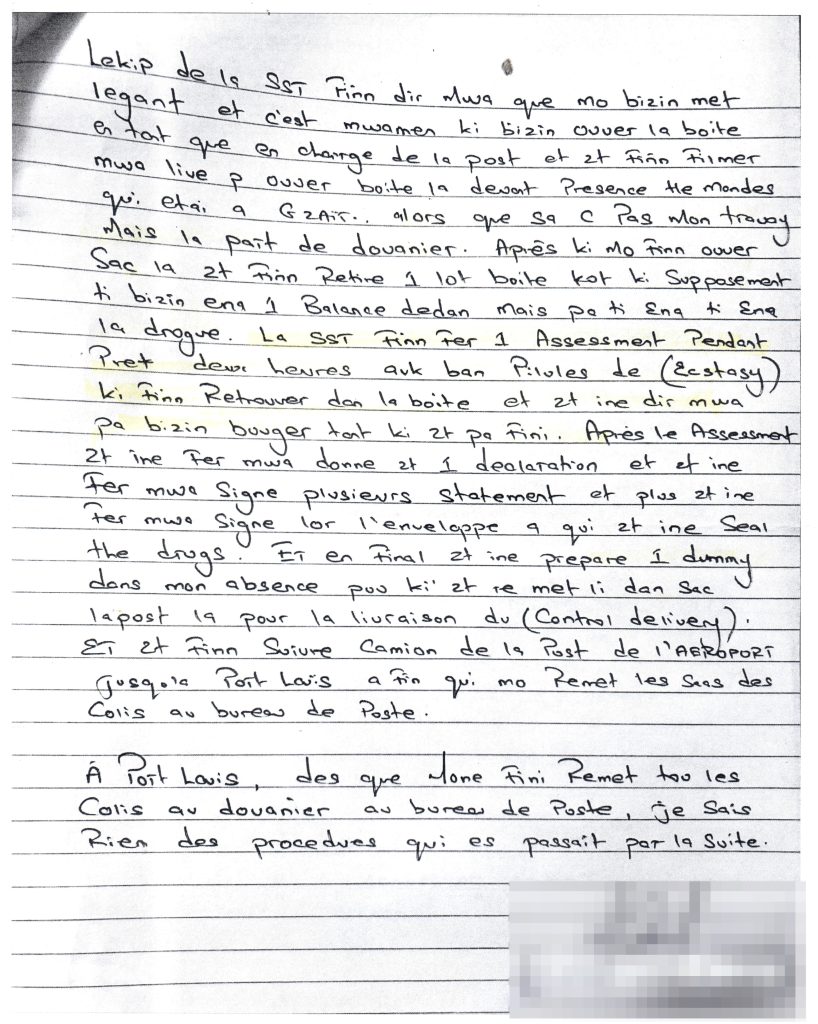 Lekip de la SST Finn dir Mwa que mo bizin met
legant et c'est mwamen ki bizin ouver la boite
en tant que en charge de la post et zt Finn Filmer
mwa live p ouver boite la devant Presence the mondes
qui etai a G2AIT.. alors que sa C Pas Mon travay
Mais la part de douanier. Après ki Mo Finn ouver
Sac la zt Finn Retire 1 lot boite kot ki Supposement
ti bizin ena 1 Balance dedan mais pa ti Ena ti Ena
la drogue. La SST Finn Fer 1 Assessment Pendant
Pret deux heures avk ban Pilules de (Ecstasy)
ki Finn Retrouver dan la boite et zt ine dir mwa
pa bizin bouger tant ki zt pa Fini. Après le Assessment
zt ine Fer mwa donne zt 1 dealaration et zt ine
Fer mwa Signe plusieurs Statement et plus zt ine
Fer mwa Signe lor l'enveloppe a qui zt ine Seal
the drugs. ET en Final zt ine prepare 1 dummy
dans mon absence pou ki zt re met li dan Sac
lapost la pour la livraison du (Control delivery).
ET zt Finn Suivre Camion de la Post de l'AEROPORT
Jusqo'a Port Lois a Fin qui mo Remet les Sacs des
Colis au bureau de Poste.
À Port Louis, des que Mone Fini Remet tou les
Colis au douanier au bureau de Poste, je Sais
Rien des procedues qui es passait par la Suite.